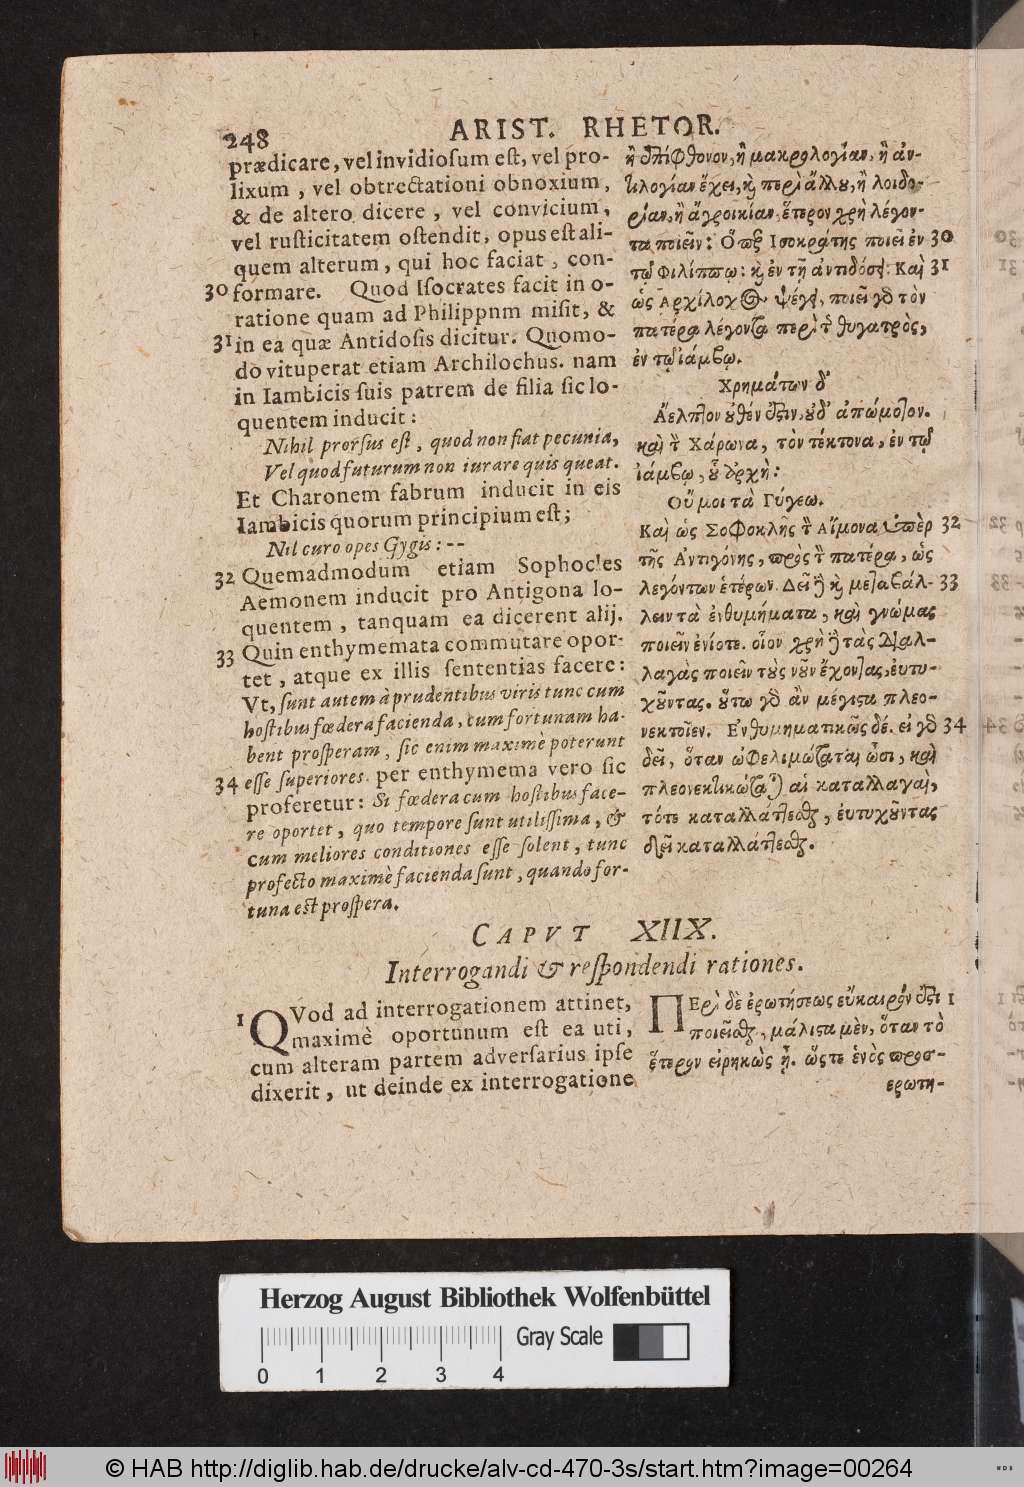 248
ARIST. RHETOR.
prædicare, vel invidiosum est, vel pro-
lixum, vel obtrectationi obnoxium,
& de altero dicere, vel convicium,
vel rusticitatem ostendit, opus est ali-
quem alterum, qui hoc faciat, con-
30 formare. Quod Isocrates facit in o-
ratione quam ad Philippnm misit, &
31 in ea quæ Antidosis dicitur. Quomo-
do vituperat etiam Archilochus. nam
in Iambicis suis patrem de filia sic lo-
quentem inducit:
Nihil prorsus est, quod non fiat pecunia,
Vel quod futurum non iurare quis queat.
Et Charonem fabrum inducit in eis
Iambicis quorum principium est;
Nil curo opes Gygis: --
32 Quemadmodum etiam Sophocles
Aemonem inducit pro Antigona lo-
quentem, tanquam ea dicerent alij.
33 Quin enthymemata commutare opor-
tet, atque ex illis sententias facere:
Vt, sunt autem à prudentibus viris tunc cum
hostibus fœdera facienda, cum fortunam ha-
bent prosperam, sic enim maximè poterunt
34 esse superiores. per enthymema vero sic
proferetur: Si fœdera cum hostibus face-
re oportet, quo tempore sunt utilissima, &
cum meliores conditiones esse solent, tunc
profecto maximè facienda sunt, quando for-
tuna est prospera.
ἢ ἐπίφθονον, ἢ μακρολογίαν, ἢ ἀν-
τιλογίαν ἔχει, καὶ περὶ ἄλλου, ἢ λοιδο-
ρίαν, ἢ ἀγροικίαν, ἕτερον χρὴ λέγον-
τα ποιεῖν: Ὅπερ Ἰσοκράτης ποιεῖ ἐν 30
τῷ Φιλίππῳ: καὶ ἐν τῇ ἀντιδόσει. Καὶ 31
ὡς Ἀρχίλοχος ψέγει, ποιεῖ γὰρ τὸν
πατέρα λέγοντα περὶ τῆς θυγατρὸς,
ἐν τῷ ἰάμβῳ.
Χρημάτων δ'
Ἄελπτον οὐθέν ἐστιν, οὐδ' ἀπώμοτον.
καὶ τὸν Χάρωνα, τὸν τέκτονα, ἐν τῷ
ἰάμβῳ, οὗ ἀρχὴ:
Οὔ μοι τὰ Γύγεω.
Καὶ ὡς Σοφοκλῆς τὸν Αἵμονα ὑπὲρ 32
τῆς Ἀντιγόνης, πρὸς τὸν πατέρα, ὡς
λεγόντων ἑτέρων. Δεῖ δὲ καὶ μεταβάλ- 33
λειν τὰ ἐνθυμήματα, καὶ γνώμας
ποιεῖν ἐνίοτε. οἷον χρὴ δὲ τὰς διαλ-
λαγὰς ποιεῖν τοὺς νοῦν ἔχοντας, εὐτυ-
χοῦντας. οὕτω γὰρ ἂν μέγιστα πλεο-
νεκτοῖεν. Ἐνθυμηματικῶς δέ. εἰ γὰρ 34
δεῖ, ὅταν ὠφελιμώταται ὦσι, καὶ
πλεονεκτικώταται αἱ καταλλαγαὶ,
τότε καταλλάττεσθαι, εὐτυχοῦντας
δεῖ καταλλάττεσθαι.
CAPVT XIIX.
Interrogandi & respondendi rationes.
1 QVod ad interrogationem attinet,
maximè oportunum est ea uti,
cum alteram partem adversarius ipse
dixerit, ut deinde ex interrogatione
ΠΕρὶ δὲ ἐρωτήσεως εὔκαιρόν ἐστι 1
ποιεῖσθαι, μάλιστα μὲν, ὅταν τὸ
ἕτερον εἰρηκὼς ᾖ. ὥστε ἑνὸς προσ-
ερωτη-
Herzog August Bibliothek Wolfenbüttel
Gray Scale
0 1 2 3 4
© HAB http://diglib.hab.de/drucke/alv-cd-470-3s/start.htm?image=00264